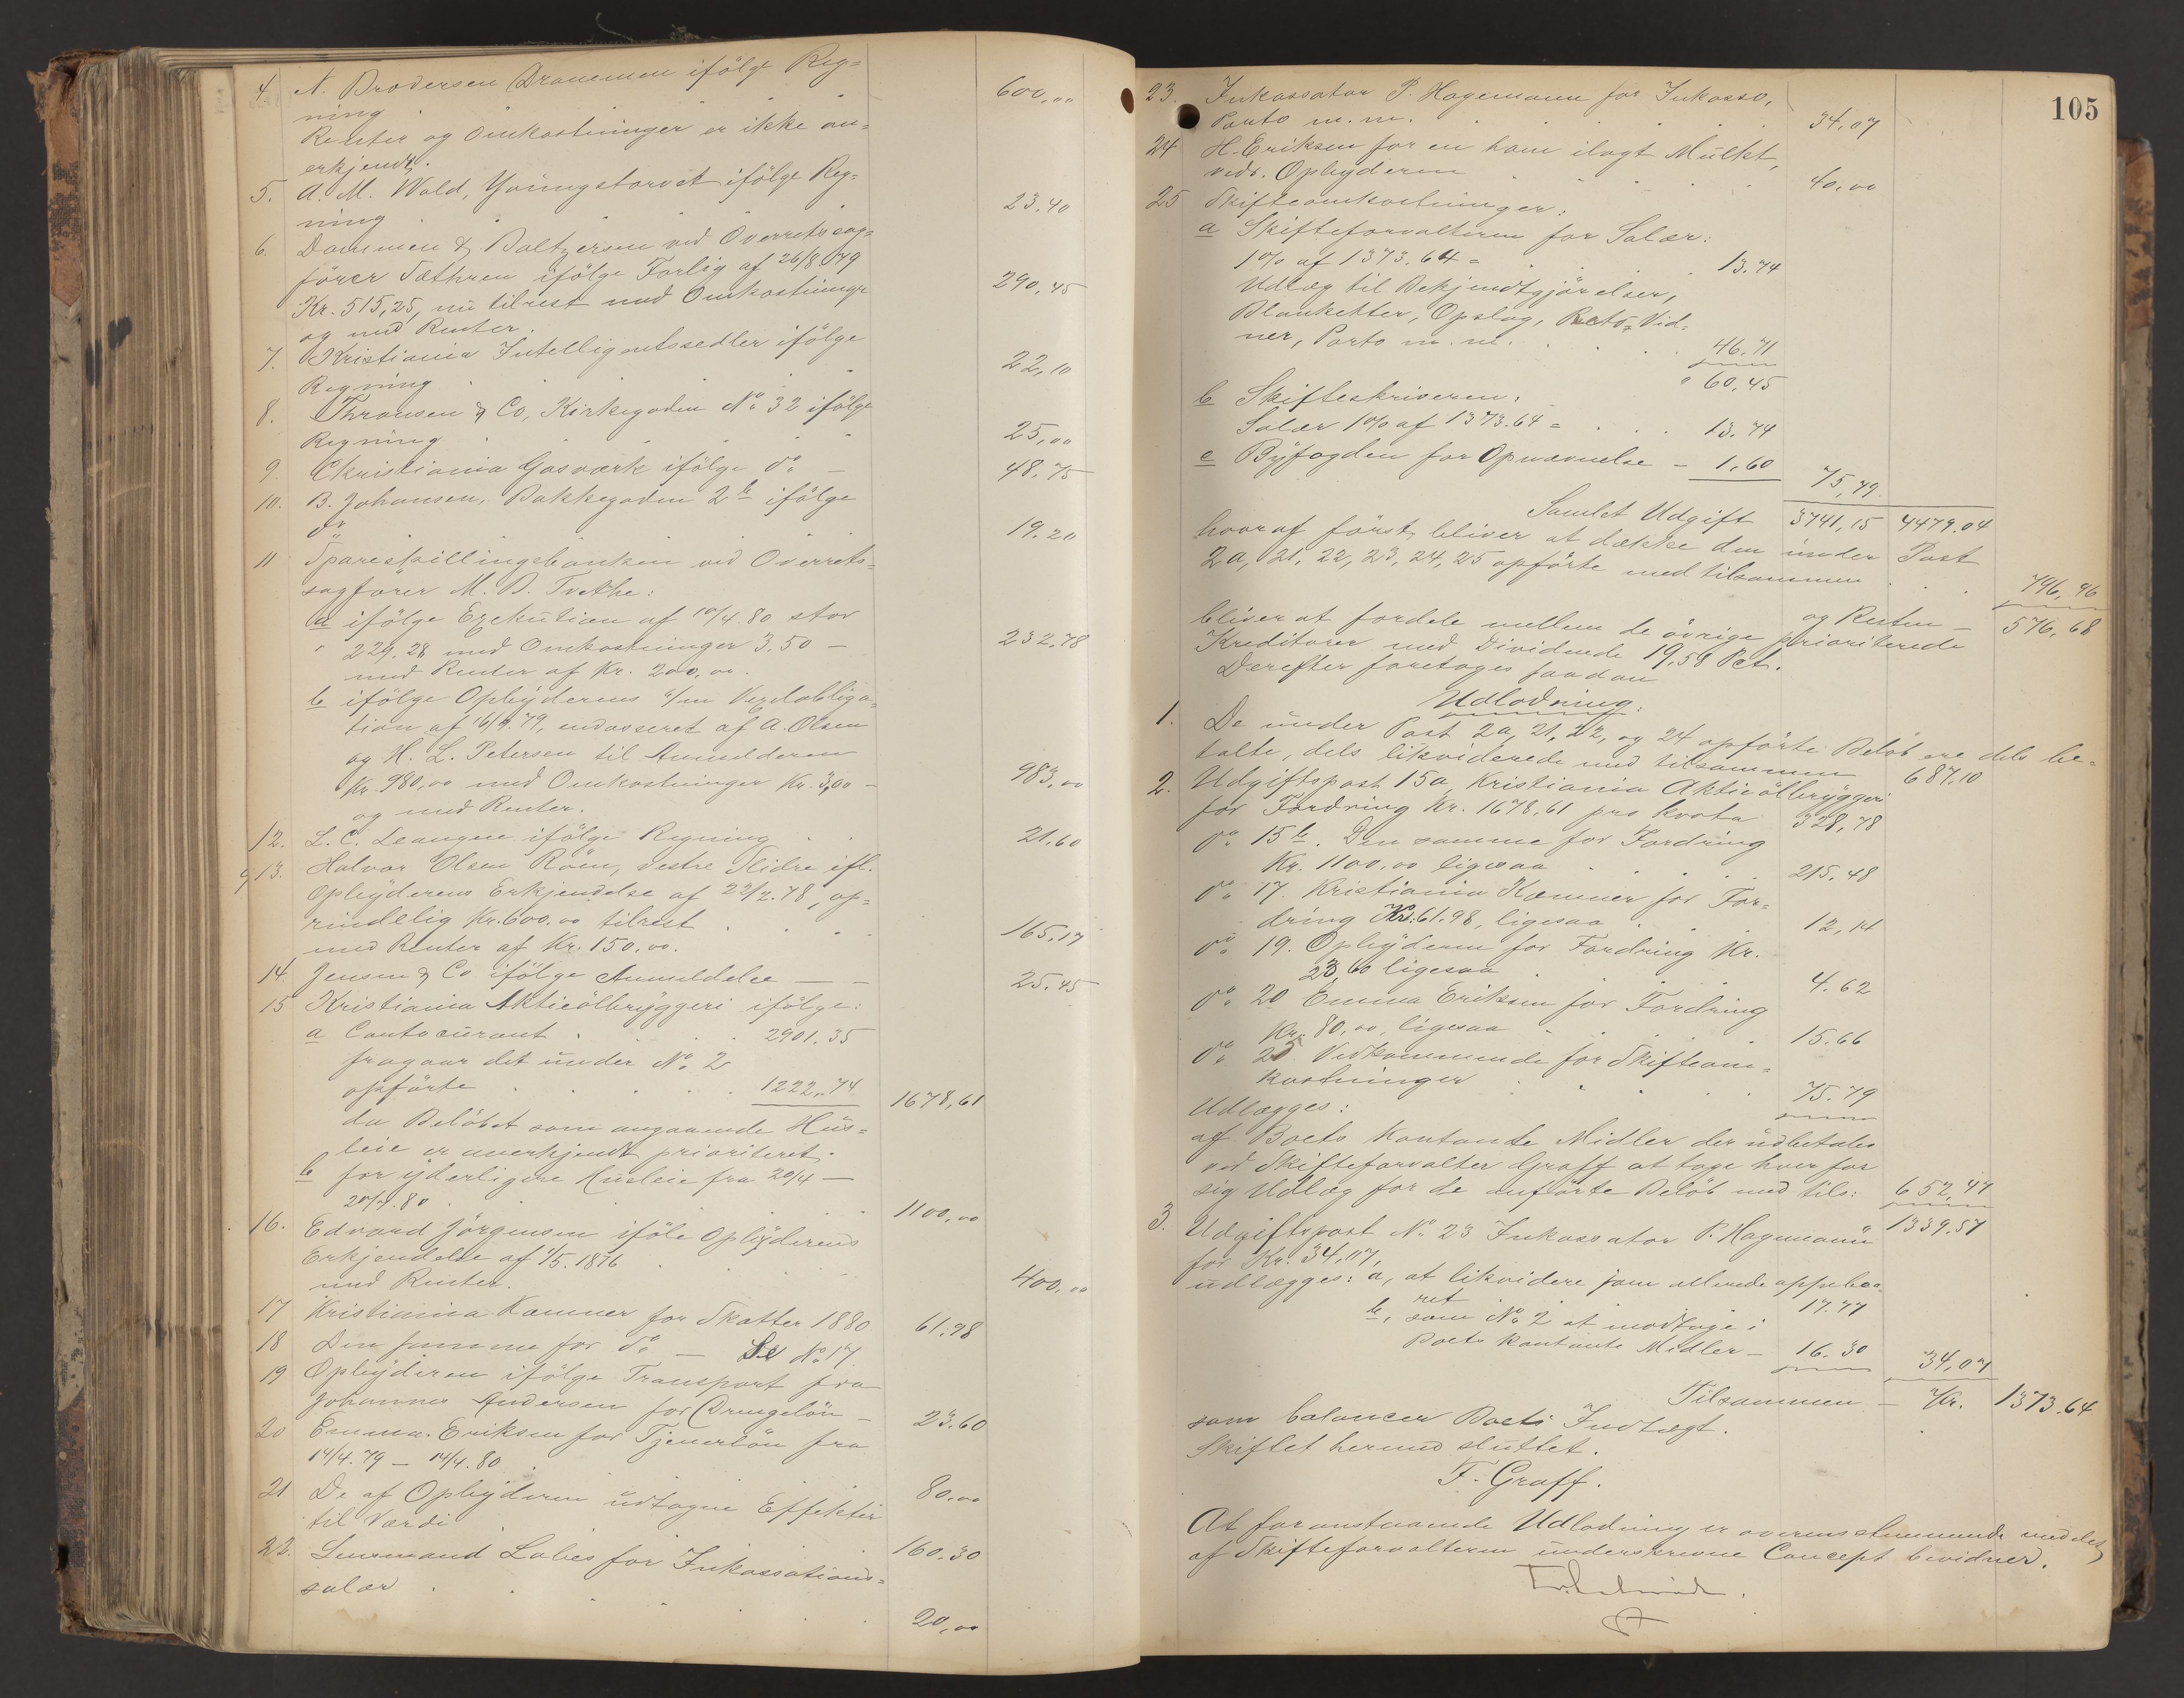 4. N. Brodersen Drammen ifölge Reg=
ning . . . 600,00
Renter og Omkostninger er ikke an=
erkjendt.
5. A. M. Wold, Youngstorvet ifölge Reg=
ning . . . 23.40
6. Dammen & Baltzersen ved Overretssag=
förer Sæthren ifölge Forlig af 26/8 79
Kr. 515,25, nu tilrest med Omkostninger 290,45
og med Renter.
7. Kristiania Intelligentssedler ifölge
Regning . . . 22,10
8. Thransen & Co, Kirkegaden No 32 ifölge
Regning . . . 25,00
9 Christiania Gasværk ifölge do — 48.75
10. B. Johansen, Bakkegaden 2b ifölge
do . . . 19.20
11 Spareskillingsbanken ved Overrets=
sagförer M. B. Tvethe:
a ifölge Exekution af 10/4.80 stor
" 229.28 med Omkostninger 3.50 — 232,78
med Renter af Kr. 200,00.
b ifölge Opbyderens m/m Vexelobliga=
tion af 16/9.79, endosseret af A. Olsen
og H. L. Petersen til Anmelderen
Kr. 980,00 med Omkostninger Kr. 3,00 — 983,00
og med Renter.
12. L. C. Leangen ifölge Regning . . 21.60
13. Halvor Olsen Röen, Vestre Slidre ifl.
Opbyderens Erkjendelse af 22/2.78, op=
rindelig Kr. 600.00 tilrest . . . 165.17
med Renter af Kr. 150.00.
14. Jensen & Co ifölge Anmeldelse — — 25.45
15 Kristiania Aktieölbryggeri ifölge:
a Contocurant . . . 2901.35
fragaar det under No 2
opförte . . . 1222.74 1678,61
da Belöbet som angaaende Hus=
leie er anerkjendt prioriteret.
b for yderligere Husleie fra 20/4 —
20/7.80 . . . 1100,00
16. Edvard Jörgensen iföle Opbyderens
Erkjendelse af 1/5.1876 . . 400,00
med Renter.
17 Kristiania Kæmner for Skatter 1880 61,98
18 Den samme for do — Se No 17.
19 Opbyderen ifölge Transport fra
Johannes Andersen for Drengelön — 23.60
20 Emma Eriksen for Tjenerlön fra
14/4.79 — 14/4.80 . . . 80.00
21 De af Opbyderen udtagne Effekter
til Værdi . . . 160.30
22. Lensmand Lobes for Inkassations=
salær . . . 20,00
105
23. Inkassator P. Hagemann for Inkasso,
Porto m.m. . . . 34.07
24 H. Eriksen for en ham ilagt Mulkt,
vedr. Opbyderen . . . 40,00
25 Skifteomkostninger:
a Skifteforvalteren for Salær:
1% af 1373.64 = . . . 13.74
Udlæg til Bekjendtgjörelser,
Blanketter, Opslag, Rets-Vid=
ner, Porto m.m. . . . 46.71
" 60,45
b Skifteskriveren:
Salær 1% af 1373.64 = . . . 13.74
c Byfogden for Opnævnelse — 1,60 75,79.
Samlet Udgift 3741,15 4479.04
hvoraf först bliver at dække den under Post
2a, 21, 22, 23, 24, 25 opförte med tilsammen . . 796,96
og Resten — 576,68
bliver at fordele mellem de övrige prioriterede
Kreditorer med Dividende 19,58 Pct.
Derefter foretoges saadan
Udlodning:
1. De under Post 2a, 21, 22, og 24 opförte Belöb ere dels be=
talte, dels likviderede med tilsammen 687.10
2. Udgiftspost 15a, Kristiania Aktieölbryggeri
for Fordring Kr. 1678,61 pro kvota 328,78
do 15b. Den samme for Fordring
Kr. 1100,00 ligesaa . . . 215.48
do 17. Kristiania Kæmner for For=
dring Kr. 61.98, ligesaa . . . 12,14
do 19. Opbyderen for Fordring Kr.
23,60 ligesaa . . . 4.62
do 20 Emma Eriksen for Fordring
Kr. 80,00, ligesaa . . . 15.66
do 25 Vedkommende for Skifteom=
kostninger . . . 75.79
Udlægges:
af Boets Kontante Midler der udbetales
ved Skifteforvalter Graff at tage hver for
sig Udlæg for de anförte Belöb med tils: 652,47
1339.57
3. Udgiftspost No 23 Inkassator P. Hagemann
for Kr. 34,07,
udlægges: a, at likvidere som allerede oppebaa=
ret 17.77
b, som No 2 at modtage i
Boets kontante Midler — 16.30 34,07
Tilsammen — Kr. 1373.64
som balancer Boets Indtægt.
Skiftet hermed sluttet.
F. Graff.
At foranstaaende Udlodning er overensstemmende med det
af Skifteforvalteren underskrevne Concept bevidner.